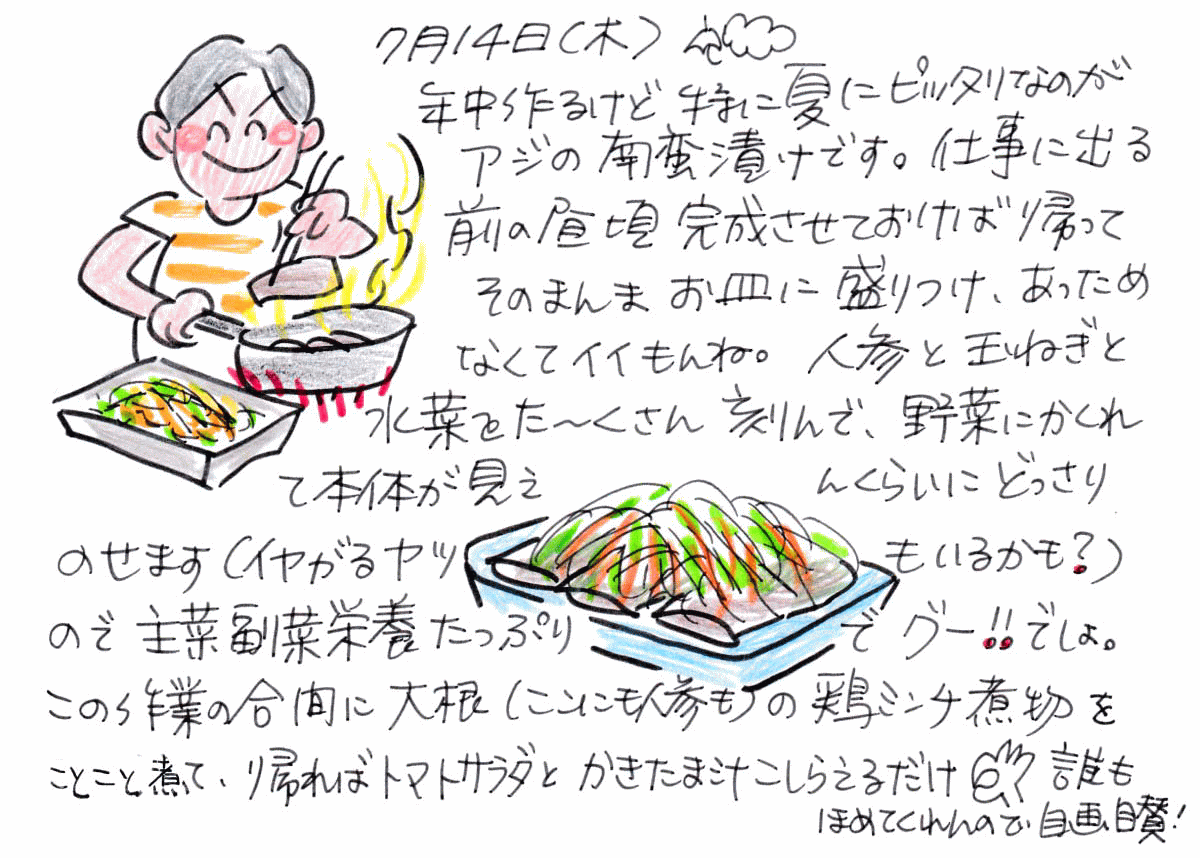 7月14日(木)
年中作るけど 特に夏にピッタリなのが
アジの南蛮漬けです。仕事に出る
前の昼頃 完成させておければ帰って
そのまんま お皿に盛りつけ、あっため
なくてイイもんね。 人参と玉ねぎと
水菜をた〜くさん 刻んで、野菜にかくれ
て本体が見え んくらいにどっさり
のせます(イヤがるヤツ もいるかも?)
ので 主菜副菜栄養たっぷり で グー!!でしょ。
この作業の合間に大根(こんにも人参も)の鶏ミンチ煮物を
ことこと煮て、帰ればトマトサラダと かきたま汁こしらえるだけ 誰も
ほめてくれんので、自画自賛!